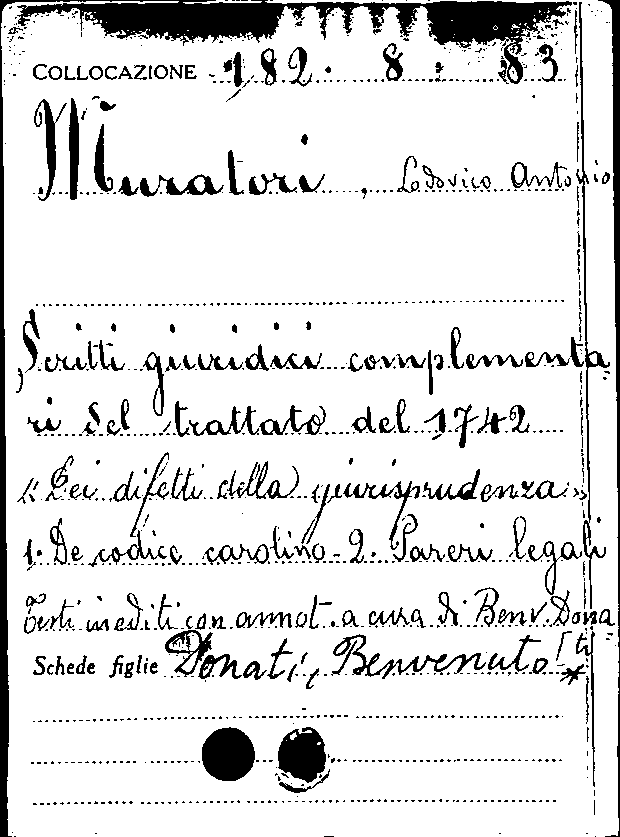 COLLOCAZIONE 182. 8. 83
Muratori, Lodovico Antonio
Scritti giuridici complementa=
ri del trattato del 1742
"Dei difetti della giurisprudenza"
1. De codice carolino - 2. Pareri legali
Testi inediti con annot. a cura di Benv. Dona
[ti
Schede figlie Donati, Benvenuto *